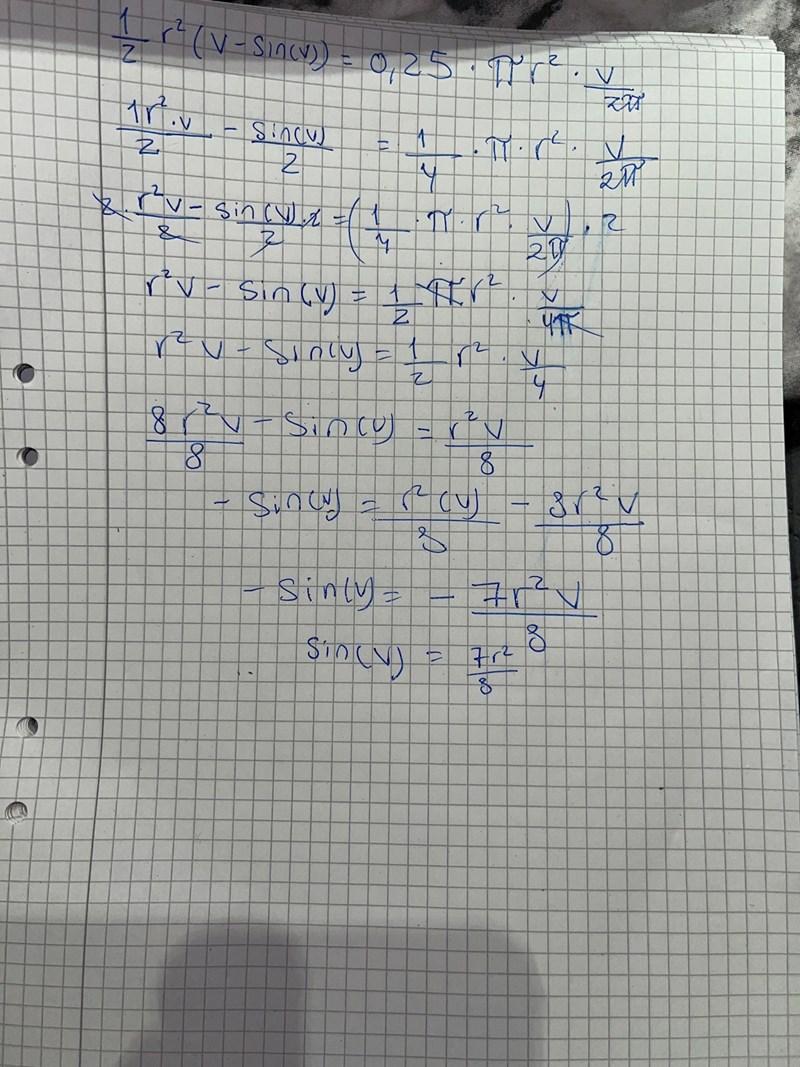 1/2 r²(v-sin(v)) = 0,25 · πr² · v/2π
1r²·v/2 - sin(v)/2 = 1/4 · π · r² · v/2π
2 · r²v/2 - sin(v)/2 · 2 = (1/4 · π · r² · v/2π) · 2
r²v - sin(v) = 1/2 πr² · v/4π
r²v - sin(v) = 1/2 r² · v/4
8r²v/8 - sin(v) = r²v/8
- sin(v) = r²(v)/8 - 8r²v/8
- sin(v) = - 7r²v/8
sin(v) = 7r²/8